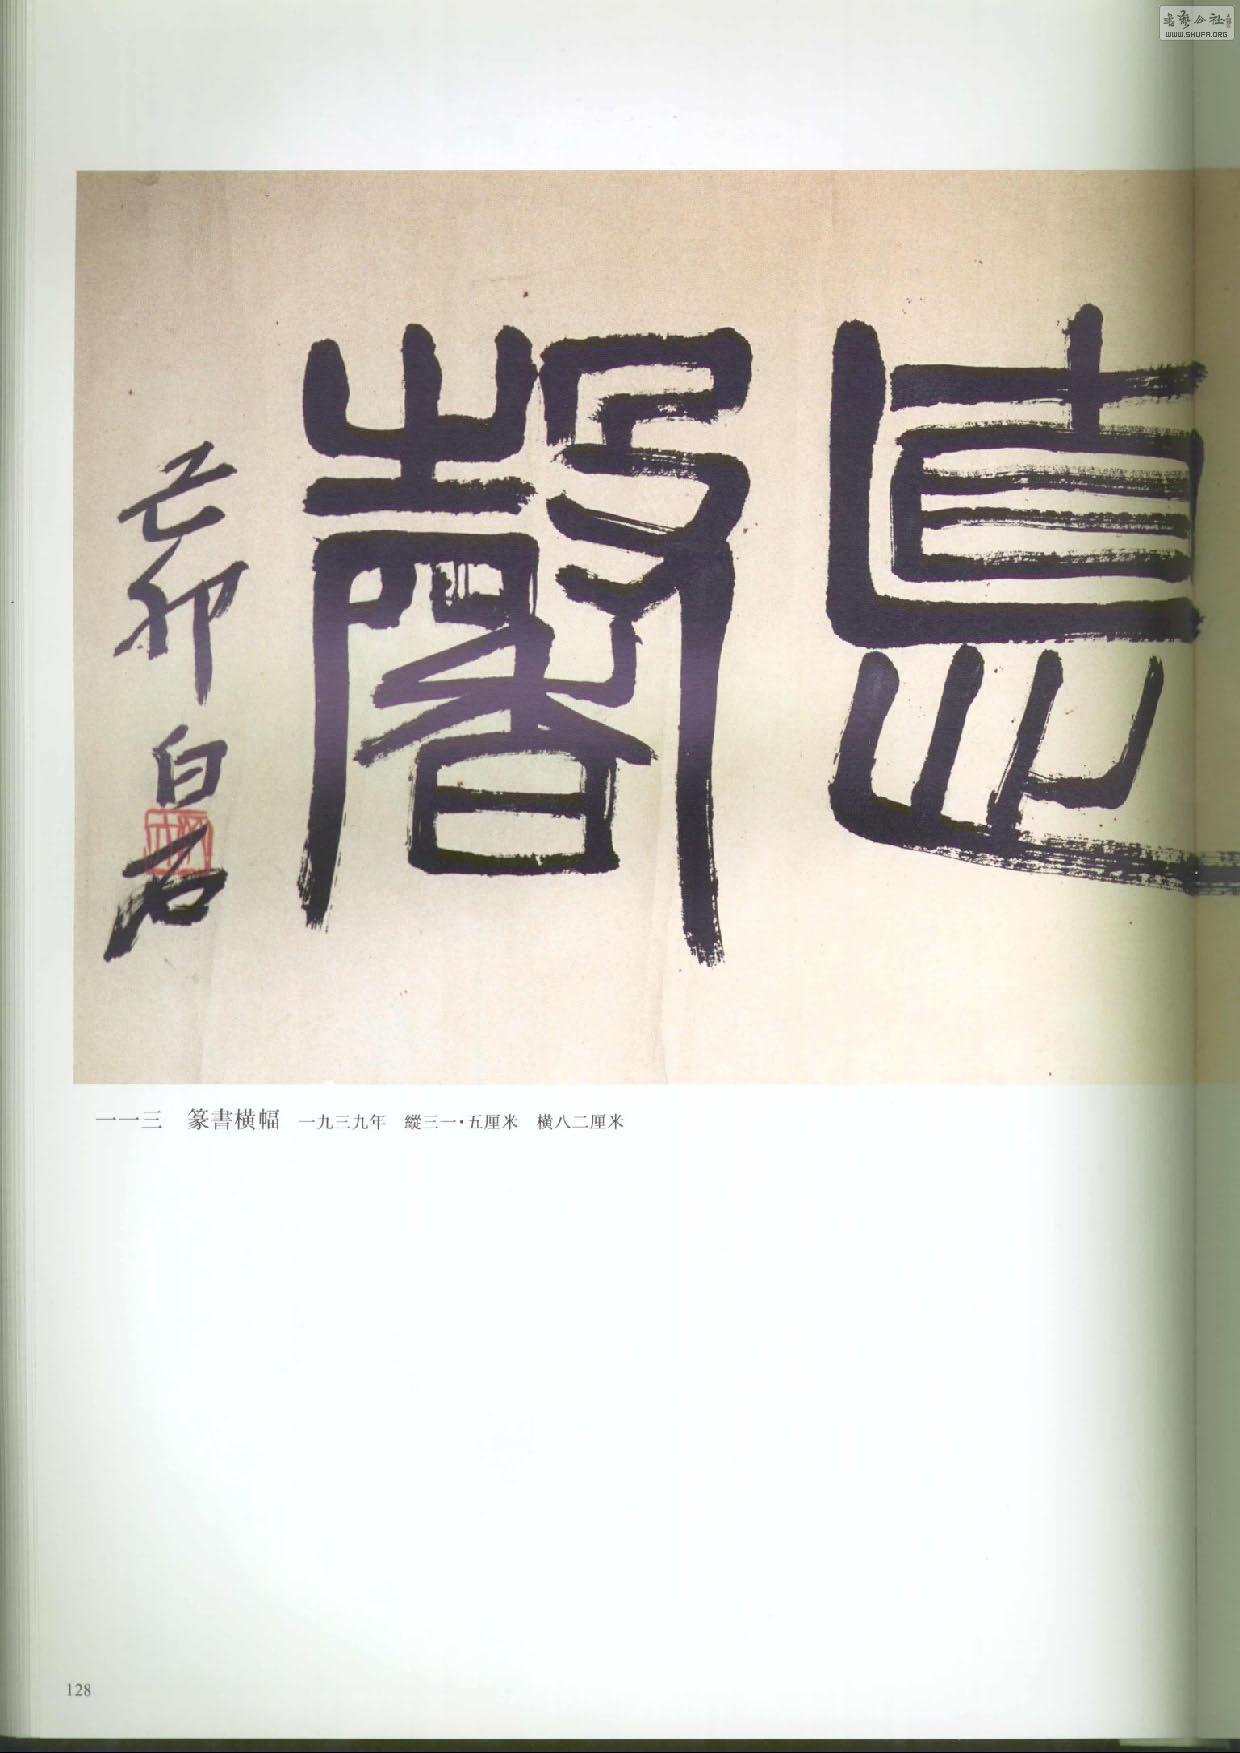 書藝公社
WWW.SHUFA.ORG
悳馨
己卯白石
一一三 篆書橫幅 一九三九年 縱三一·五厘米 橫八二厘米
128